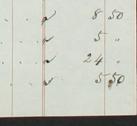 . . . ✓ 8 50
. . . ✓ 5 "
. . . ✓ 24 "
. . . ✓ 5 50